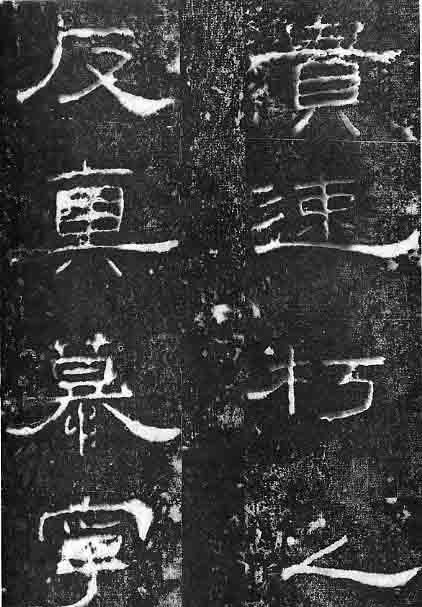 貴速朽之
反真慕寧